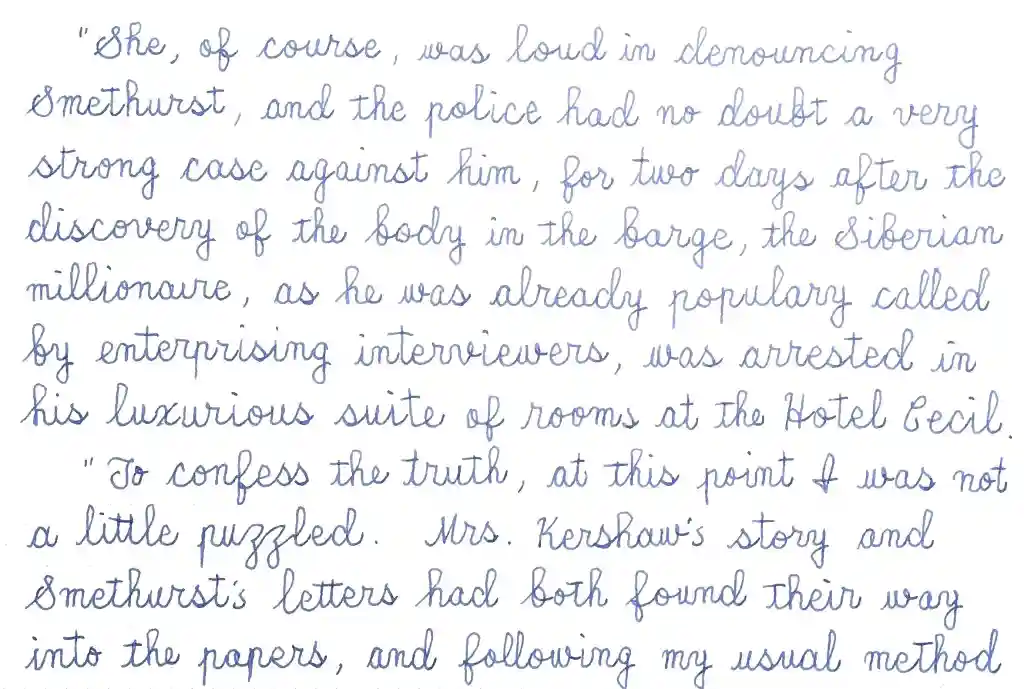 "She, of course, was loud in denouncing
Smethurst, and the police had no doubt a very
strong case against him, for two days after the
discovery of the body in the barge, the Siberian
millionaire, as he was already populary called
by enterprising interviewers, was arrested in
his luxurious suite of rooms at the Hotel Cecil.
"To confess the truth, at this point I was not
a little puzzled. Mrs. Kershaw's story and
Smethurst's letters had both found their way
into the papers, and following my usual method